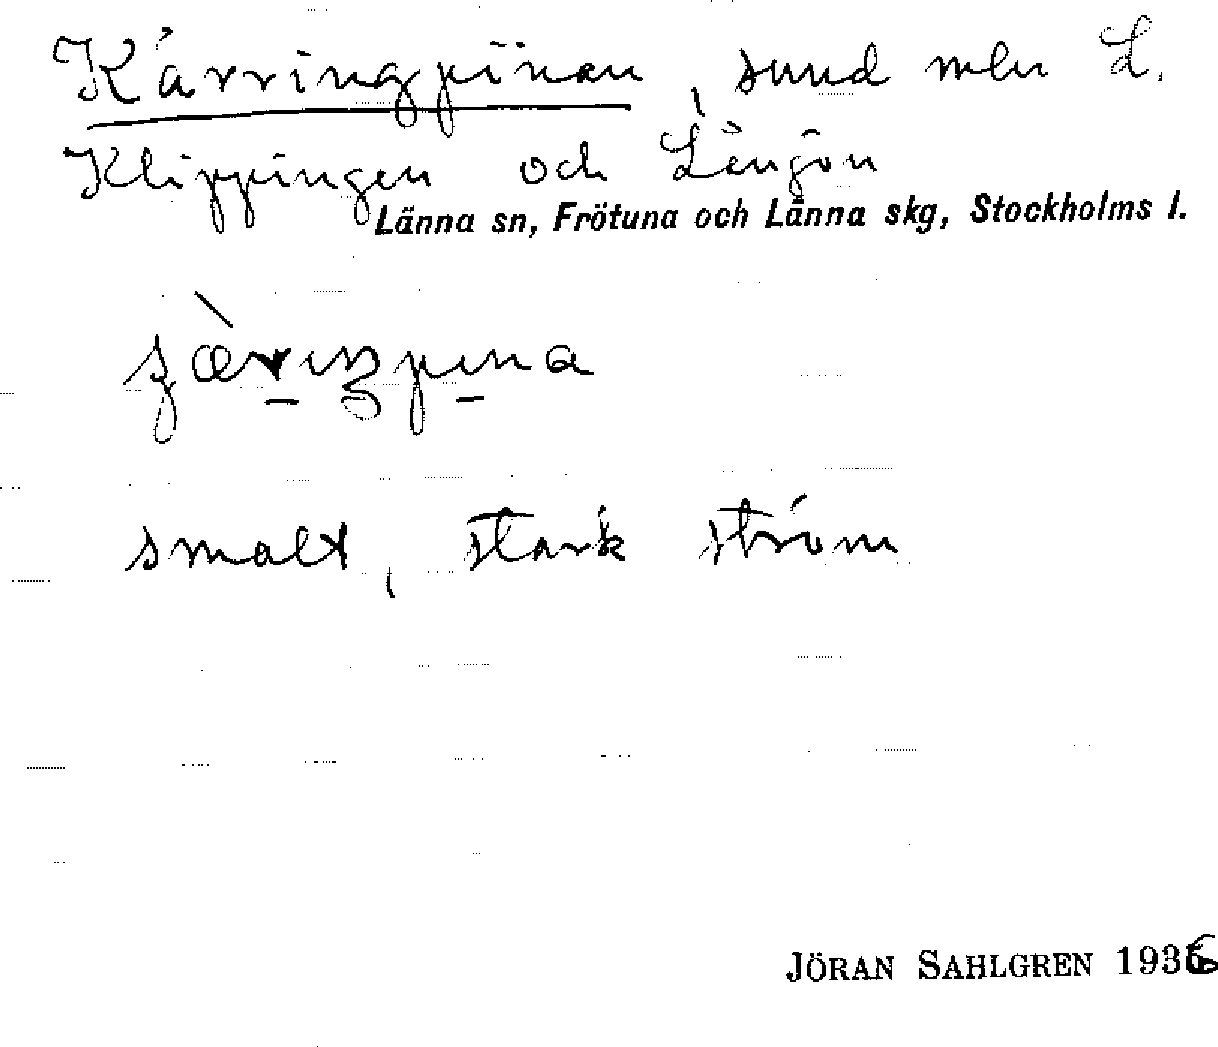 Kärringpinan, sund mln L.
Klippingen och Längön
Länna sn, Frötuna och Länna skg, Stockholms l.
smalt, stark ström
JÖRAN SAHLGREN 1936